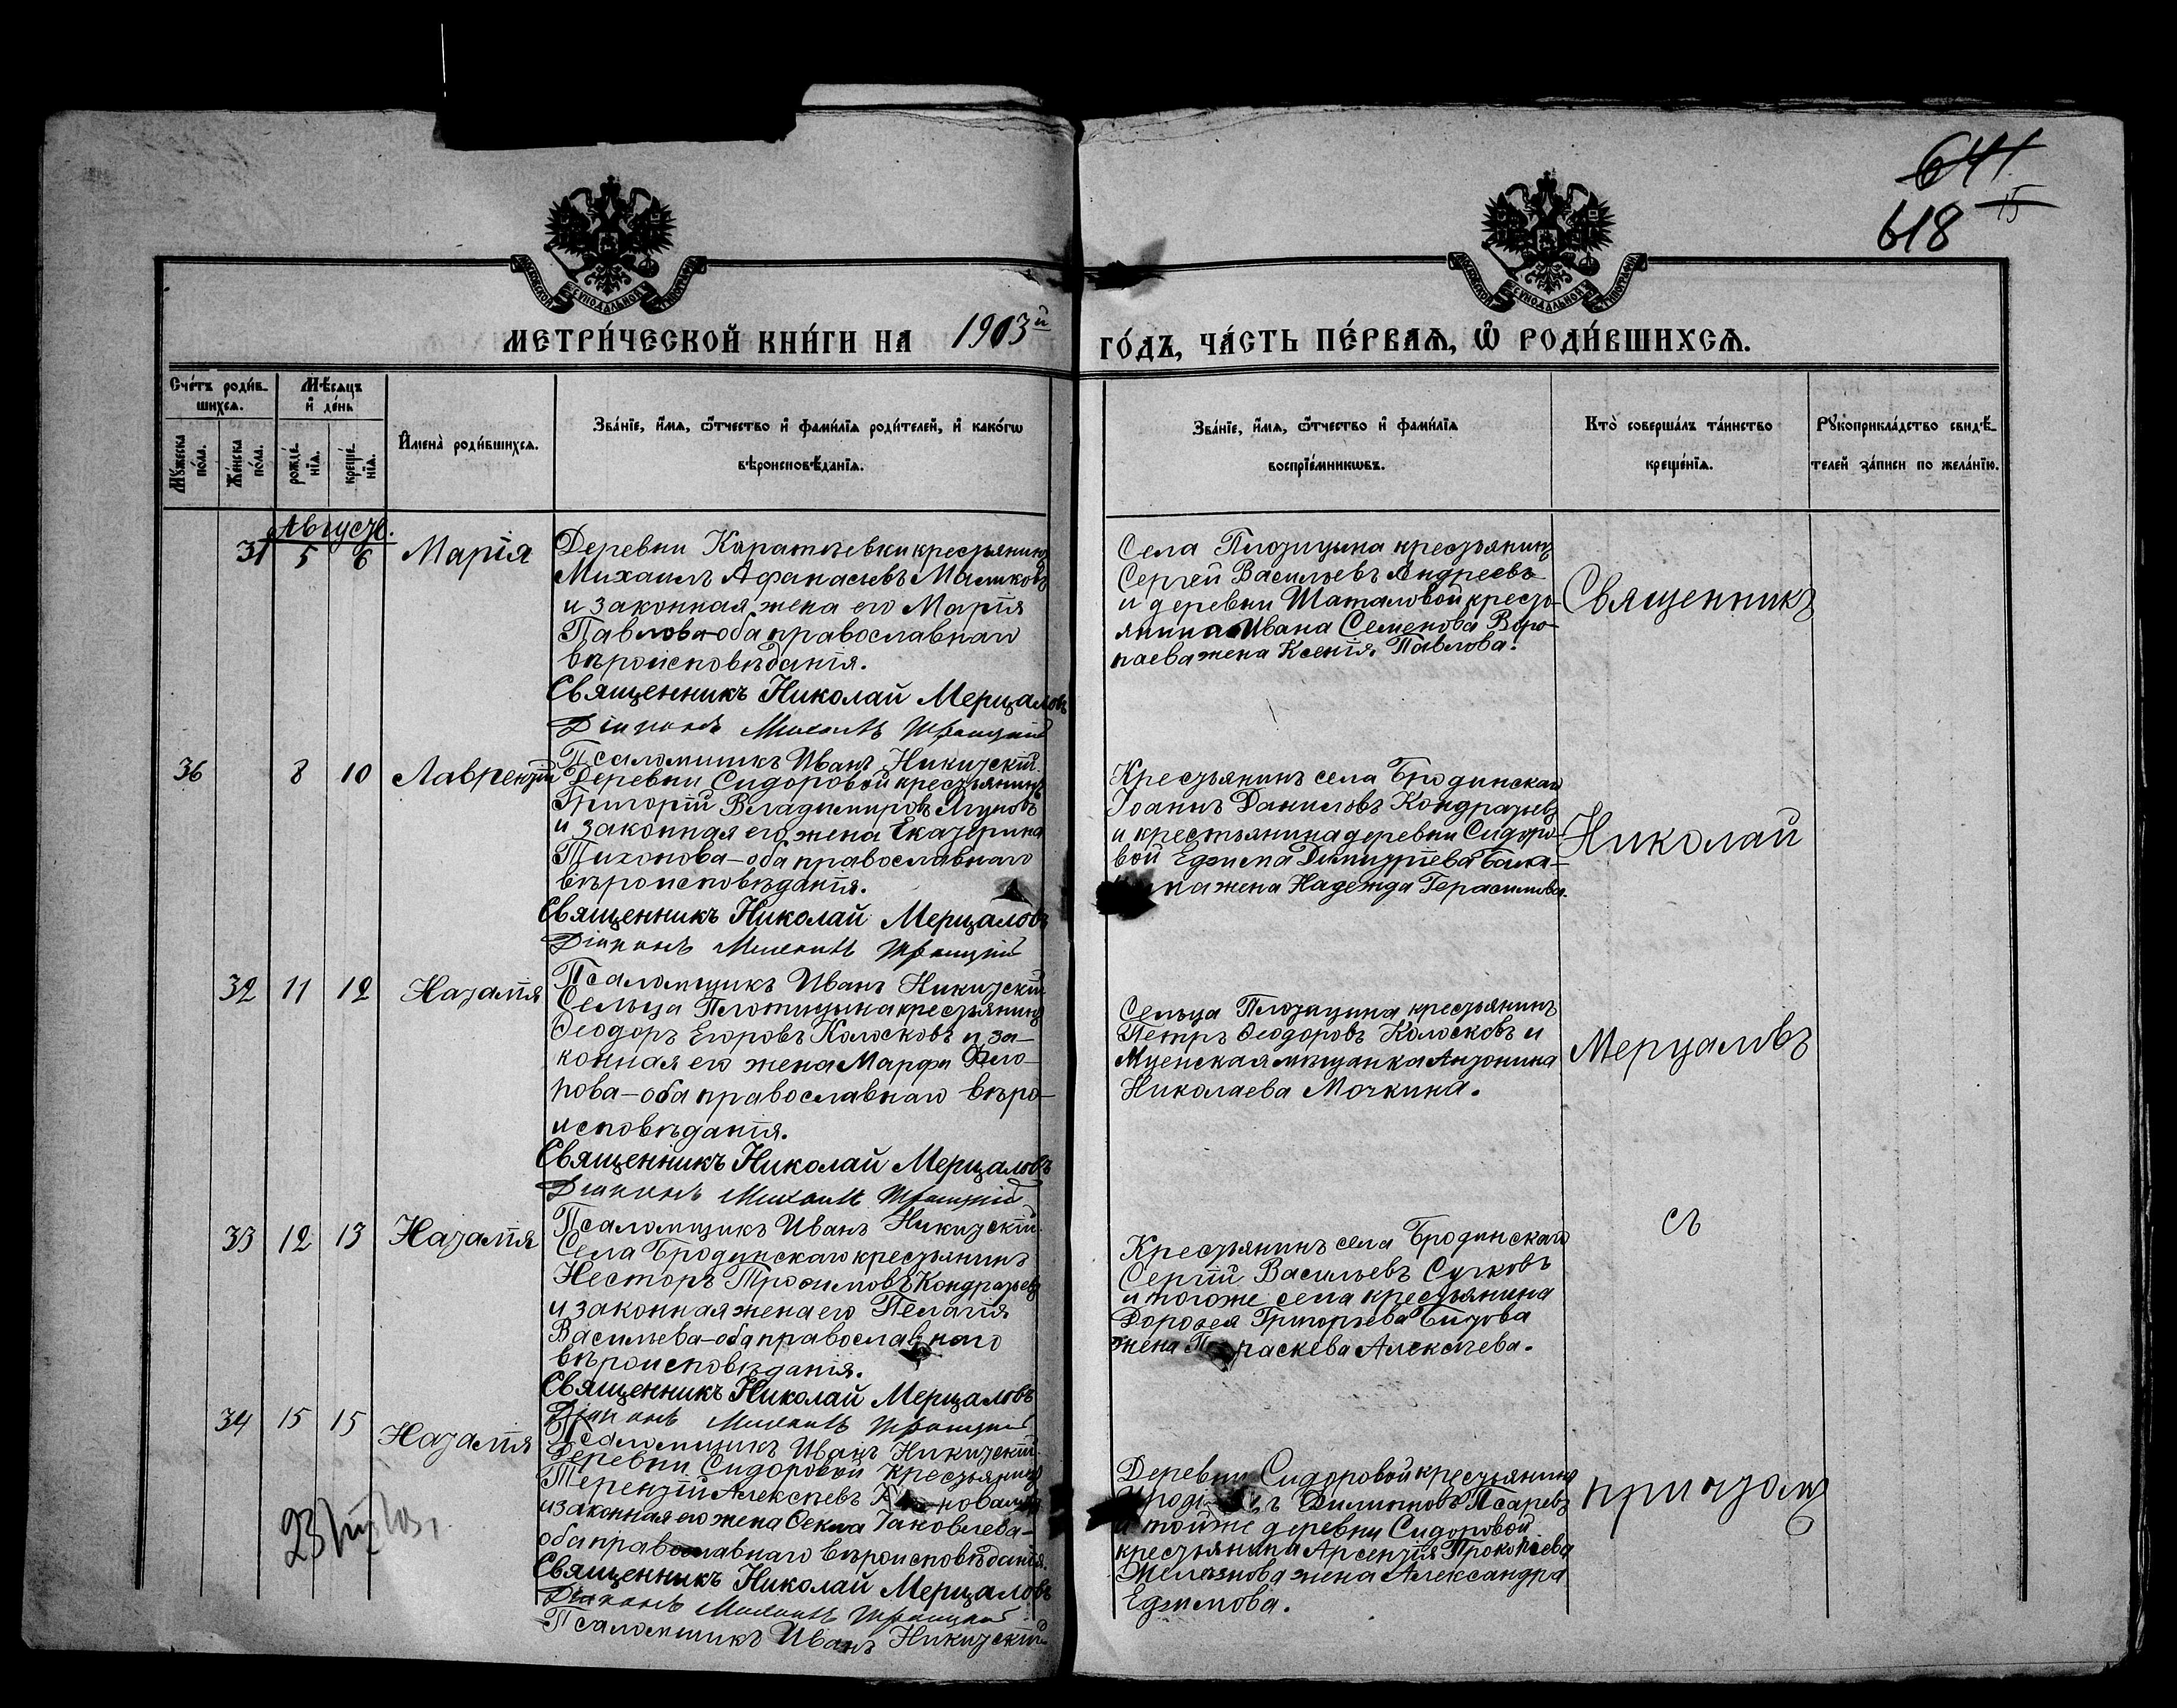 641
15
618
МОСКОВСКОЙ СѴНОДАЛЬНОЙ ТИПОГРАФІИ
МОСКОВСКОЙ СѴНОДАЛЬНОЙ ТИПОГРАФІИ
МЕТРИ́ЧЕСКОЙ КНИ́ГИ НА 1903й ГО́ДЪ, ЧА́СТЬ ПЕ́РВАѦ, Ѽ РОДИ́ВШИХСѦ.
Сче́тъ роди́в-
шихсѧ.
Мѣ́сяцъ
и҆ де́нь
Мꙋ́жеска
по́ла.
Же́нска
по́ла.
рожде́-
нїѧ.
креще́-
нїѧ.
И҆мена̀ роди́вшихсѧ.
Зва́нїе, и҆́мѧ, ѻ҆́тчество и҆ фами́лїѧ роди́телей, и҆ како́гѡ
вѣроисповѣ́данїѧ.
Зва́нїе, и҆́мѧ, ѻ҆́тчество и҆ фами́лїѧ
воспрїе́мникѡвъ.
Кто̀ соверша́лъ та́инство
креще́нїѧ.
Рꙋкоприкла́дство свидѣ́-
телей за́писи по жела́нїю.
Августъ.
31 5 6 Марія
Деревни Каратѣевки крестьянинъ
Михаилъ Афанасьевъ Маликовъ
и законная жена его Марія
Павлова оба православнаго
вѣроисповѣданія.
Священникъ Николай Мерцаловъ
Діаконъ Михаилъ Троицкій
Псаломщикъ Иванъ Никитскій.
Села Плотицына крестьянинъ
Сергѣй Васильевъ Андреевъ
и деревни Шаталовой кресть-
янина Ивана Семенова Воро-
наева жена Ксенія Павлова.
Священникъ
36 8 10 Лаврентій
Деревни Сидоровой крестьянинъ
Григорій Владимировъ Ягуновъ
и законная его жена Екатерина
Тихонова - оба православнаго
вѣроисповѣданія.
Священникъ Николай Мерцаловъ
Діаконъ Михаилъ Троицкій
Псаломщикъ Иванъ Никитскій
Крестьянинъ села Бродинскаго
Іоаннъ Даниловъ Кондратьевъ
и крестьянина деревни Сидоро-
вой Ефима Димитріева
на жена Надежда Герасимова.
Николай
32 11 12 Наталія
Сельца Плотицына крестьянинъ
Ѳеодоръ Егоровъ Колосковъ и за-
конная его жена Марфа
нова - оба православнаго вѣро-
исповѣданія.
Священникъ Николай Мерцаловъ
Діаконъ Михаилъ Троицкій
Псаломщикъ Иванъ Никитскій.
Сельца Плотицына крестьянинъ
Петръ Ѳеодоровъ Колосковъ и
Мценская мѣщанка Антонина
Николаева Мочкина.
Мерцаловъ
33 12 13 Наталія
Села Бродинскаго крестьянинъ
Несторъ Трофимовъ Кондратьевъ
и законная жена его Пелагія
Васильева - оба православнаго
вѣроисповѣданія.
Священникъ Николай Мерцаловъ
Діаконъ Михаилъ Троицкій
Псаломщикъ Иванъ Никитскій.
Крестьянинъ села Бродинскаго
Сергій Васильевъ Сучковъ
и тогоже села крестьянина
Дороѳея Григорьева
жена Параскева Алексѣева.
съ
34 15 15 Наталія
Деревни Сидоровой крестьянинъ
Терентій Алексѣевъ
и законная его жена Ѳекла Іаковлева -
оба православнаго вѣроисповѣданія.
Священникъ Николай Мерцаловъ
Діаконъ Михаилъ Троицкій
Псаломщикъ Иванъ Никитскій
Деревни Сидоровой крестьянинъ
Филипповъ Псаревъ
и тойже деревни Сидоровой
крестьянина Арсентія Прокопіева
Желѣзнова жена Александра
Ефимова.
причтомъ
23